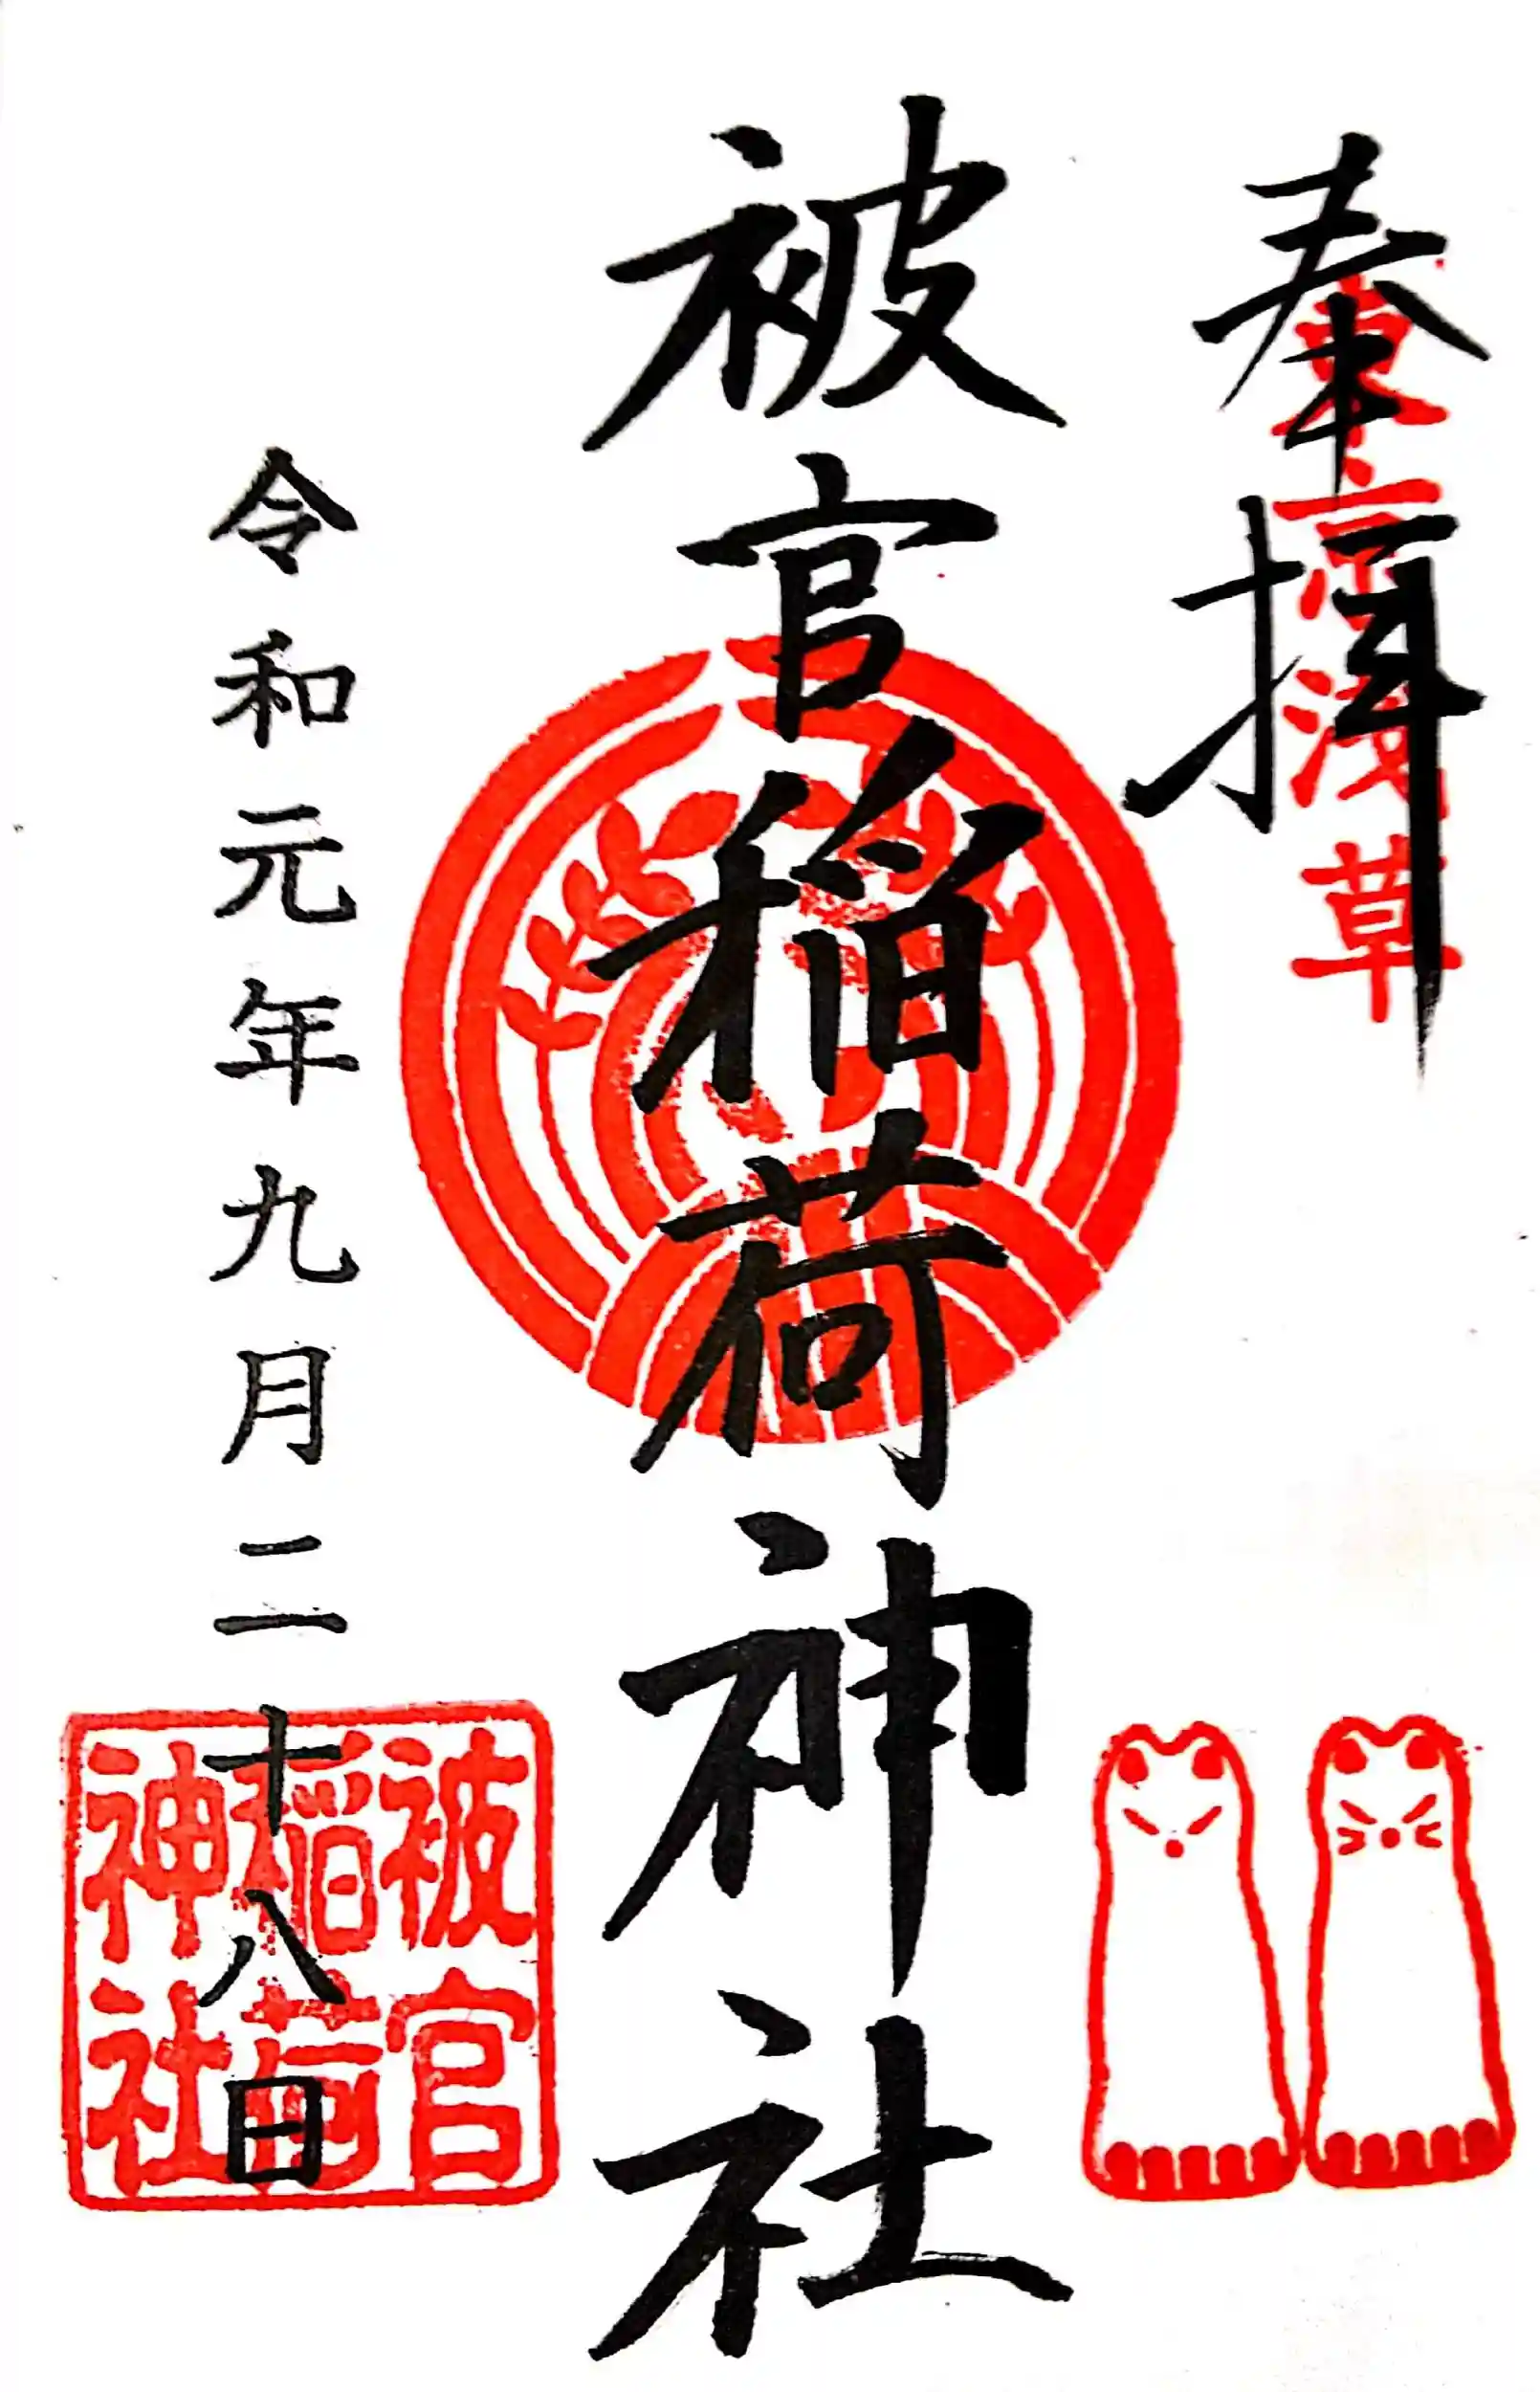 奉拝
東京浅草
被官稲荷神社
令和元年九月二十八日
被官
稲荷
神社